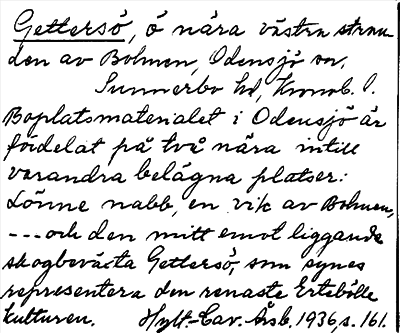 Gettersö, ö nära västra stran-
den av Bolmen, Odensjö sn,
Sunnerbo hd, Kronob. l.
Boplatsmaterialet i Odensjö är
fördelat på två nära intill
varandra belägna platser:
Lönne nabb, en vik av Bolmen,
--- och den mitt emot liggande
skogbeväxta Gettersö, som synes
representera den renaste Ertebölle
kulturen. Hylt.-Cav. Årsb. 1936, s. 161.